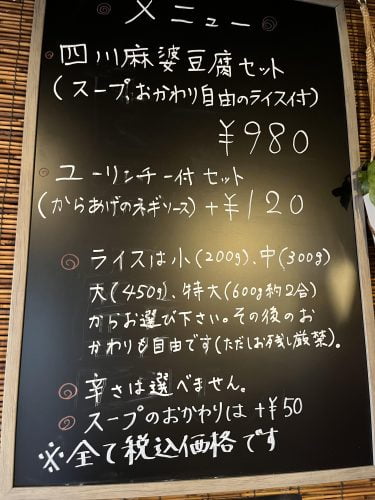 メニュー
四川麻婆豆腐セット
(スープ、おかわり自由のライス付)
¥980
ユーリンチー付セット
(からあげのネギソース) +¥120
ライスは小(200g)、中(300g)
大(450g)、特大(600g約2合)
からお選び下さい。その後のお
かわりも自由です(ただしお残し厳禁)。
辛さは選べません。
スープのおかわりは+¥50
※全て税込価格です